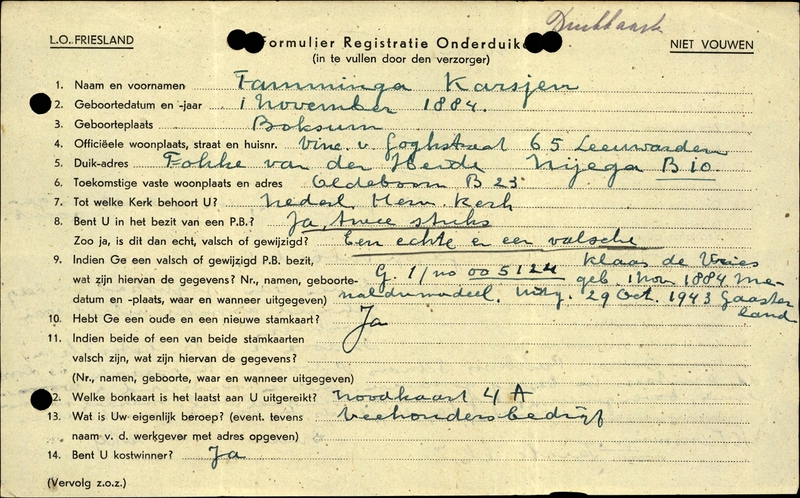 L.O. FRIESLAND
Formulier Registratie Onderduike
(in te vullen door den verzorger)
NIET VOUWEN
1. Naam en voornamen Tamminga Karsjen
2. Geboortedatum en -jaar 1 November 1884.
3. Geboorteplaats Boksum
4. Officiëele woonplaats, straat en huisnr. Vinc. v. Goghstraat 65 Leeuwarden
5. Duik-adres Fokke van der Heide Nijega B 10
6. Toekomstige vaste woonplaats en adres Oldeboorn B 23
7. Tot welke Kerk behoort U? Nederl. Herv. Kerk
8. Bent U in het bezit van een P.B.? Ja, twee stuks
Zoo ja, is dit dan echt, valsch of gewijzigd? Een echte en een valsche
9. Indien Ge een valsch of gewijzigd P.B. bezit, Klaas de Vries
wat zijn hiervan de gegevens? Nr., namen, geboorte- G. 1/no 005124 geb. 1 Nov. 1884 Me-
datum en -plaats, waar en wanneer uitgegeven) naldumadeel. Uitg. 29 Oct. 1943 Gaaster
land
10. Hebt Ge een oude en een nieuwe stamkaart? Ja
11. Indien beide of een van beide stamkaarten
valsch zijn, wat zijn hiervan de gegevens?
(Nr., namen, geboorte, waar en wanneer uitgegeven)
2. Welke bonkaart is het laatst aan U uitgereikt? noodkaart 4 A
13. Wat is Uw eigenlijk beroep? (event. tevens veehoudersbedrijf
naam v. d. werkgever met adres opgeven)
14. Bent U kostwinner? Ja
(Vervolg z.o.z.)